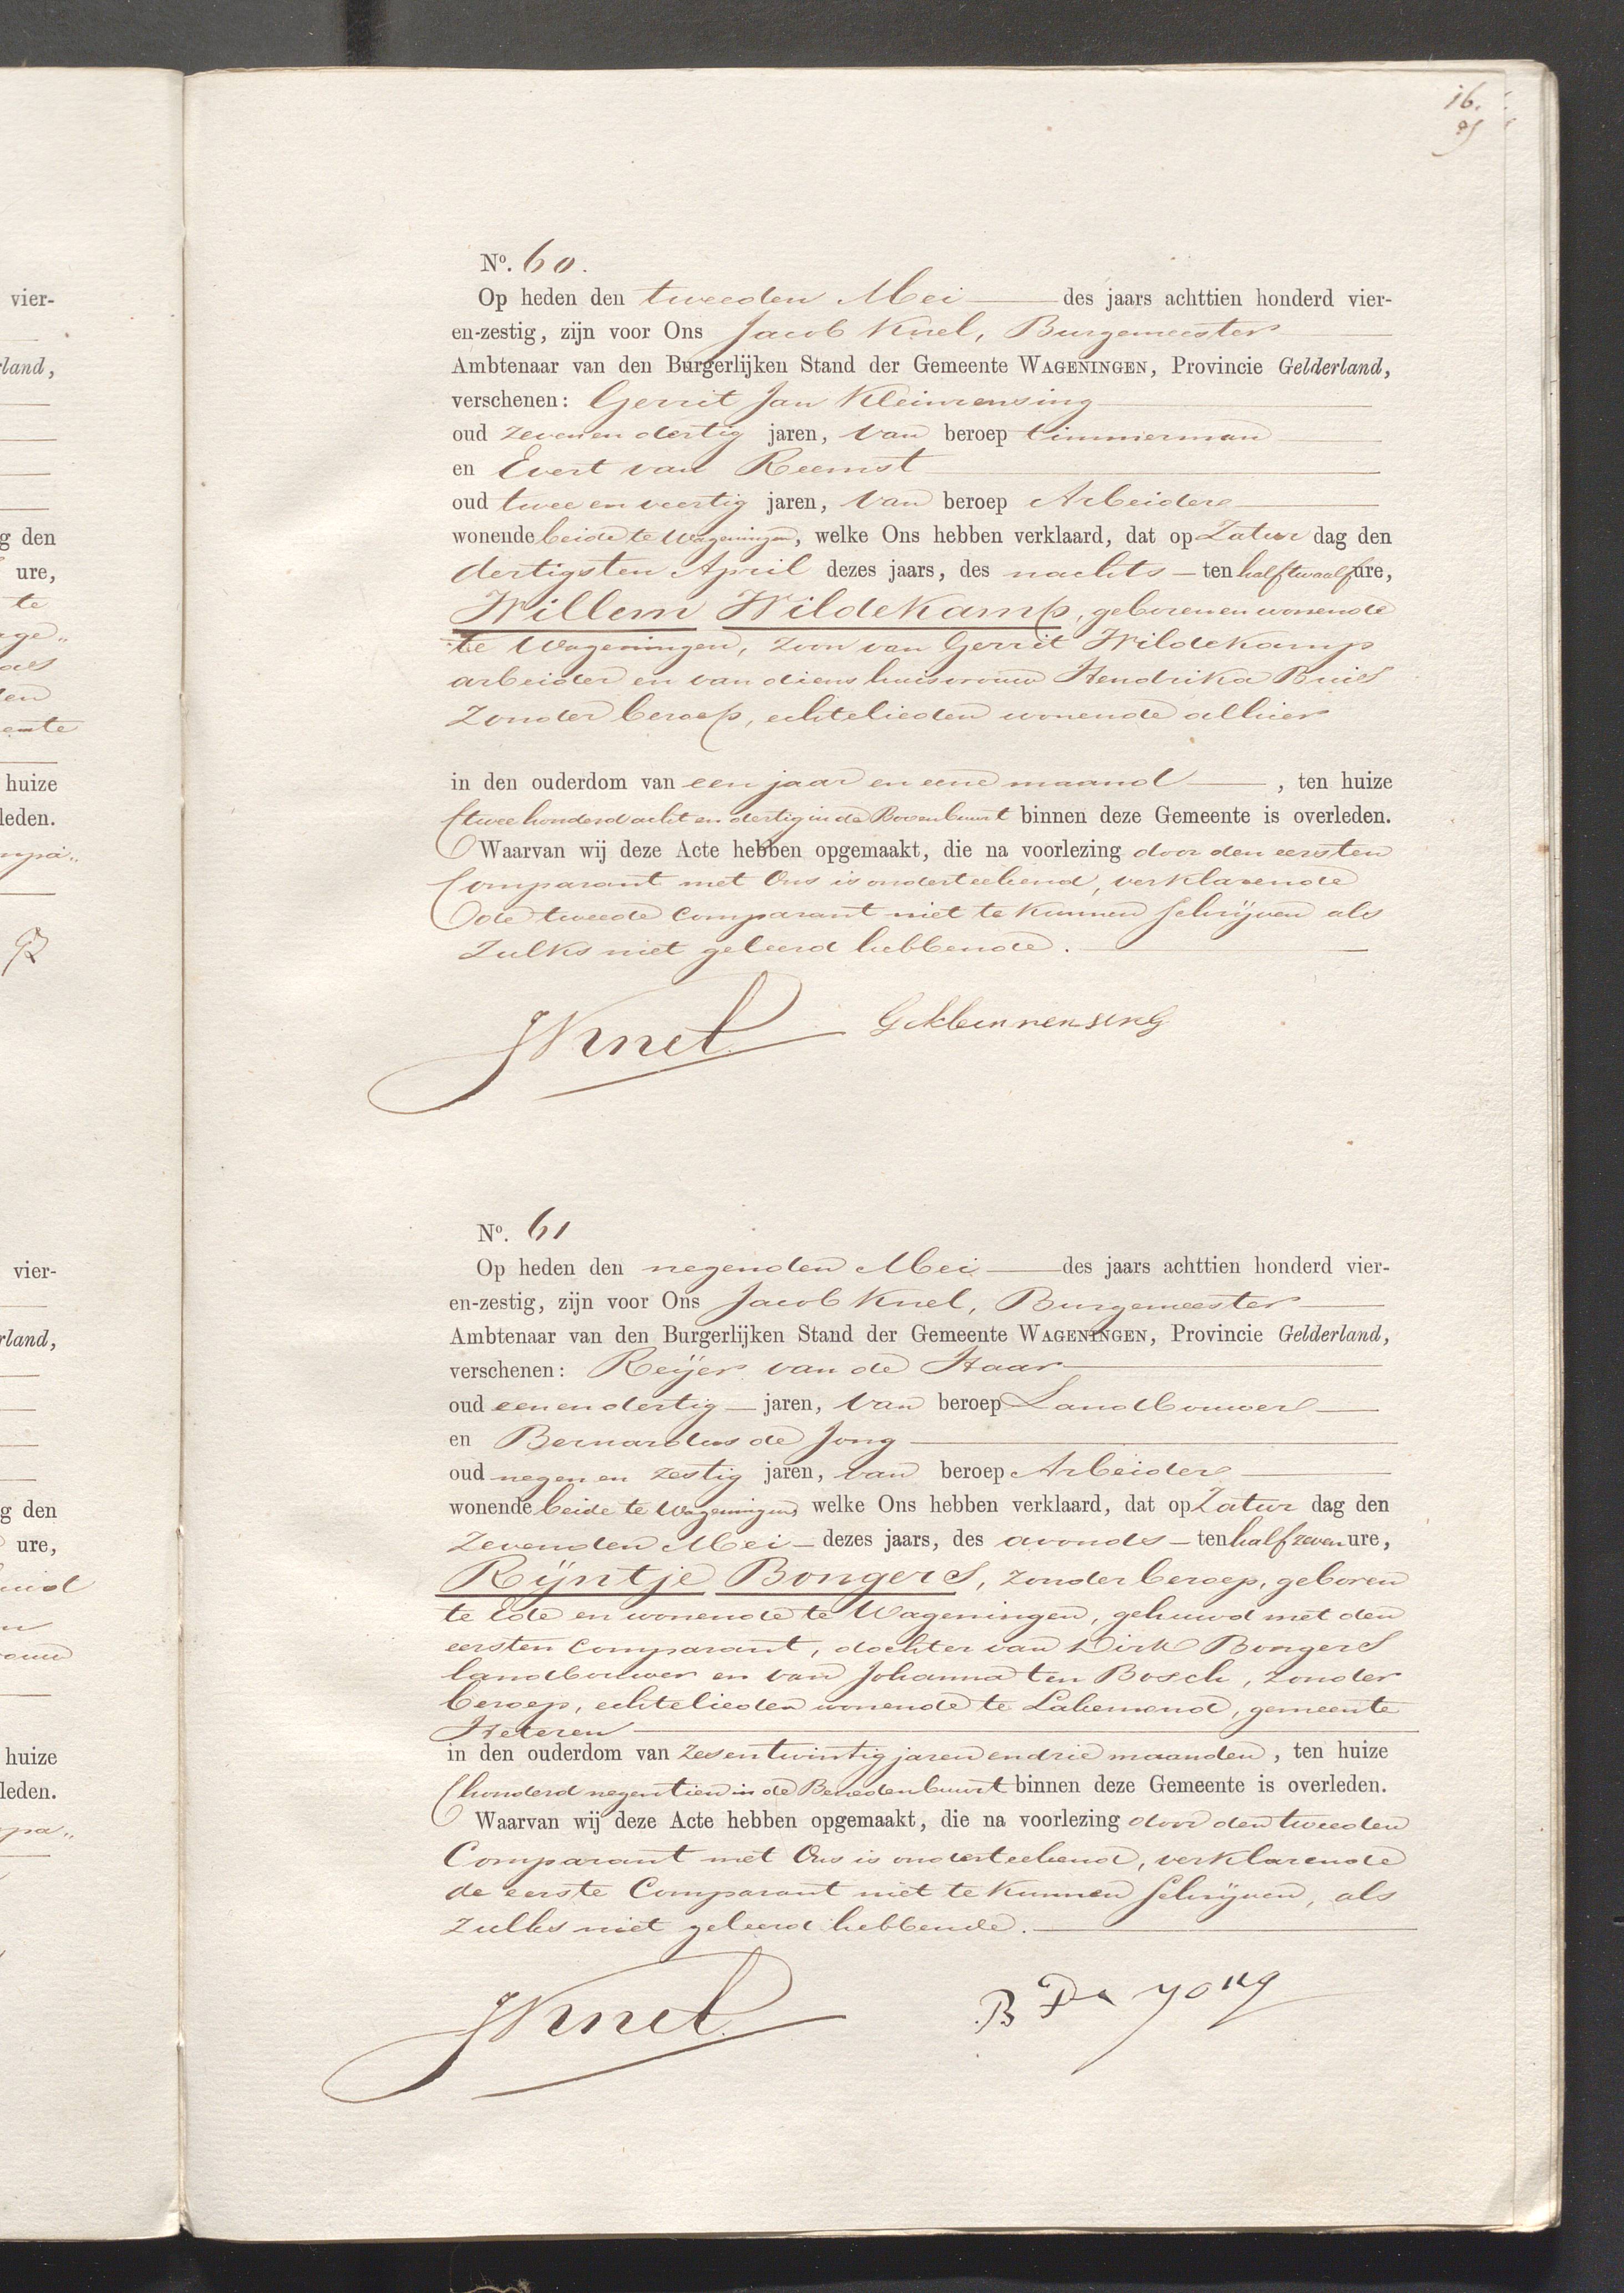 16.
vier-
rland,
g den
ure,
te
huize
leden.
vier-
rland,
g den
ure,
huize
leden.
No. 60.
Op heden den tweeden Mei des jaars achttien honderd vier-
en-zestig, zijn voor Ons Jacob Knel, Burgemeester
Ambtenaar van den Burgerlijken Stand der Gemeente WAGENINGEN, Provincie Gelderland,
verschenen: Gerrit Jan Kleinrensing
oud zevenendertig jaren, van beroep timmerman
en Evert van Reemst
oud twee en veertig jaren, van beroep Arbeider
wonende beide te Wageningen, welke Ons hebben verklaard, dat op Zatur dag den
dertigsten April dezes jaars, des nachts ten half twaalf ure,
Willem Wildekamp, geboren en wonende
te Wageningen, zoon van Gerrit Wildekamp
arbeider en van diens huisvrouw Hendrika Buis
zonder beroep, echtelieden wonende alhier
in den ouderdom van een jaar en eene maand, ten huize
twee honderd acht en dertig in de Bovenbuurt binnen deze Gemeente is overleden.
Waarvan wij deze Acte hebben opgemaakt, die na voorlezing door den eersten
Comparant met Ons is onderteekend, verklarende
de tweede Comparant niet te kunnen schrijven als
zulks niet geleerd hebbende.
JKnel. GKleinrensing
No. 61
Op heden den negenden Mei des jaars achttien honderd vier-
en-zestig, zijn voor Ons Jacob Knel, Burgemeester
Ambtenaar van den Burgerlijken Stand der Gemeente WAGENINGEN, Provincie Gelderland,
verschenen: Reijer van de Haar
oud eenendertig jaren, van beroep Landbouwer
en Bernardus de Jong
oud negen en zestig jaren, van beroep Arbeider
wonende beide te Wageningen, welke Ons hebben verklaard, dat op Zatur dag den
zevenden Mei dezes jaars, des avonds ten half zeven ure,
Rijntje Bongers, zonder beroep, geboren
te Ede en wonende te Wageningen, gehuwd met den
eersten comparant, dochter van Dirk Bongers
landbouwer en van Johanna ten Bosch, zonder
beroep, echtelieden wonende te Lakemond, gemeente
Heteren
in den ouderdom van zesentwintig jaren en drie maanden, ten huize
honderd negentien in de Benedenbuurt binnen deze Gemeente is overleden.
Waarvan wij deze Acte hebben opgemaakt, die na voorlezing door den tweeden
Comparant met Ons is onderteekend, verklarende
de eerste Comparant niet te kunnen schrijven, als
zulks niet geleerd hebbende.
JKnel. B De yong